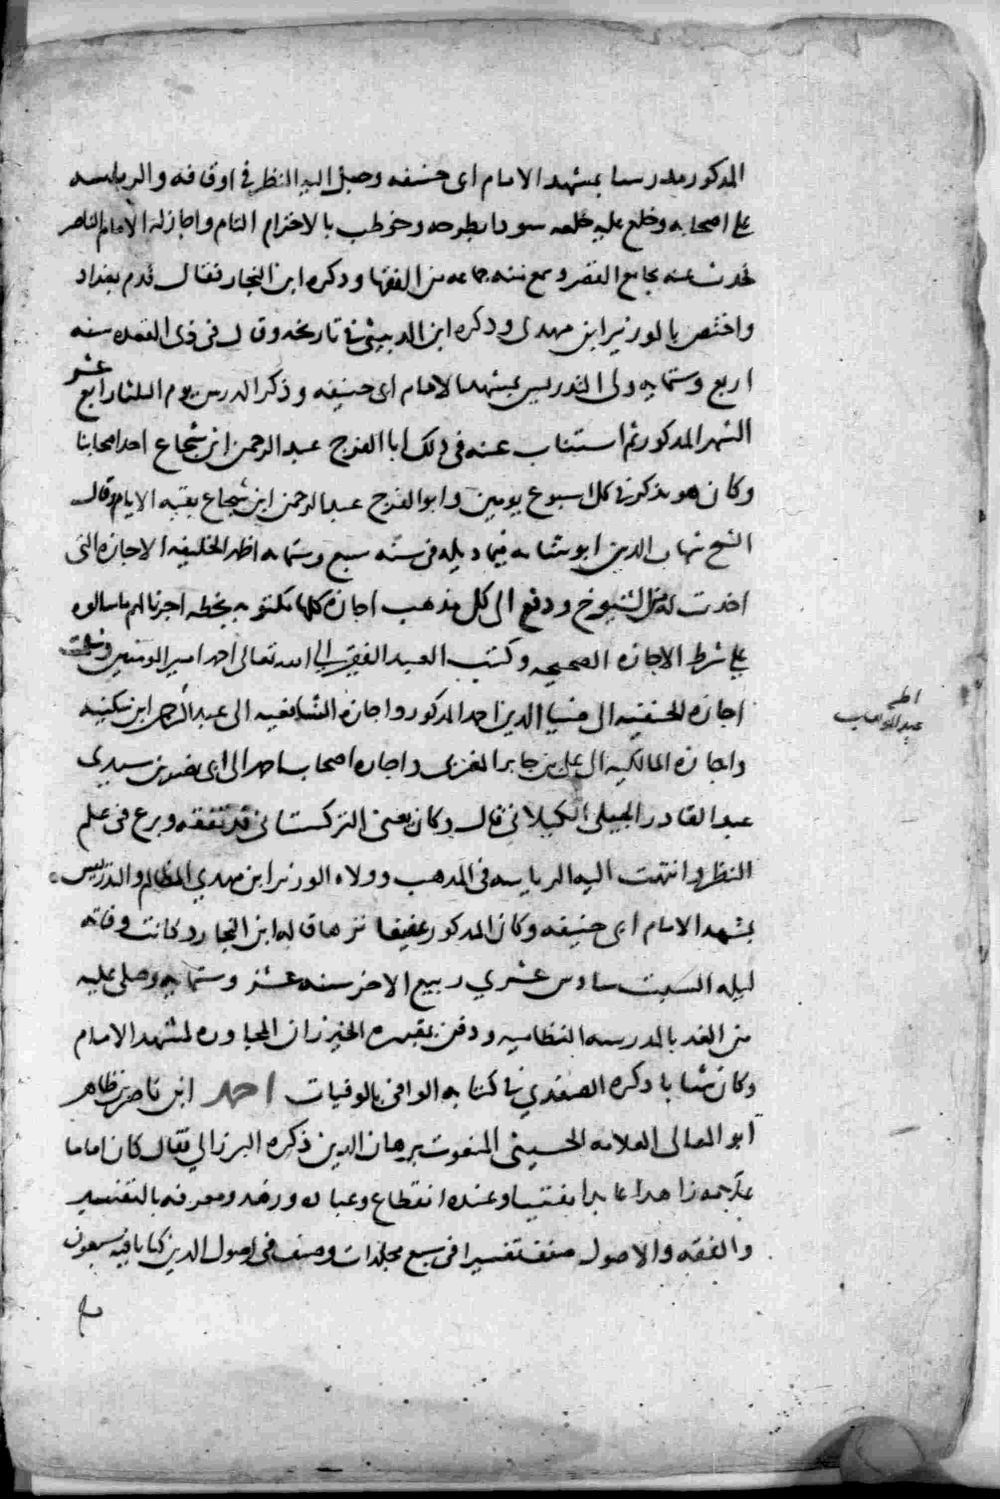 المذكور مدرسا بمشهد الامام ابى حنيفه وجعل اليه النظر فى اوقافه والرياسه
على اصحابه وخلع عليه خلعه سودا بطرحه وخوطب بالاحترام التام واجاز له الامام الناصر
فحدث عنه بجامع القصر وسمع منه جماعه من الفقها وذكره ابن النجار فقال قدم بغداد
واختص بالوزير ابن مهدى وذكره ابن الدبيثى فى تاريخه وقال فى ذى القعده سنه
اربع وستمايه ولى التدريس بمشهد الامام ابى حنيفه وذكر الدرس يوم الثلثا رابع عشر
الشهر المذكور ثم استناب عنه فى ذلك ابا الفرج عبد الرحمن ابن شجاع احد اصحابنا
وكان هو يذكر فى كل اسبوع يومين وابو الفرج عبد الرحمن ابن شجاع بقيه الايام وقال
الشيخ شهاب الدين ابو شامه فيما ذيله فى سنه سبع وستمايه اظهر الخليفه الاجازه التى
اخذت له من الشيوخ ودفع الى كل مذهب اجازه كلها مكتوبه بخطه اجزنا لهم ما سالوه
على شرط الاجازه الصحيحه وكتب العبد الفقير الى الله تعالى احمد امير المومنين وسلمت
اجازه الحنفيه الى ضيا الدين احمد المذكور واجازه الشافعيه الى عبد الرحمن ابن سكينه
واجازه المالكيه الى على بن جابر المغربى واجازه اصحاب احمد الى ابى نصر بن سيدى
عبد القادر الجيلى الكيلانى قال وكان يعنى التركستانى قد تفقه وبرع فى علم
النظر وانتهت اليه الرياسه فى المذهب وولاه الوزير ابن مهدي المظالم والتدريس
بمشهد الامام ابى حنيفه وكان المذكور عفيفا نزها قاله ابن النجار وكانت وفاته
ليله السبت سادس عشري ربيع الاخر سنه عشر وستمايه وصلى عليه
من الغد بالمدرسه النظاميه ودفن بمقبره الخيزران المجاوره لمشهد الامام
وكان شابا ذكره الصفدي فى كتابه الوافى بالوفيات احمد ابن ناصر بن طاهر
ابو المعالى العلامه الحسينى المنعوت ببرهان الدين ذكره البرزالي فقال كان اماما
علامه زاهدا عابدا مفتيا وعنده انقطاع وعباده وزهد ومعرفه بالتفسير
والفقه والاصول صنف تفسيرا فى سبع مجلدات وصنف فى اصول الدين كتابا فيه سبعون
عبد الوهاب